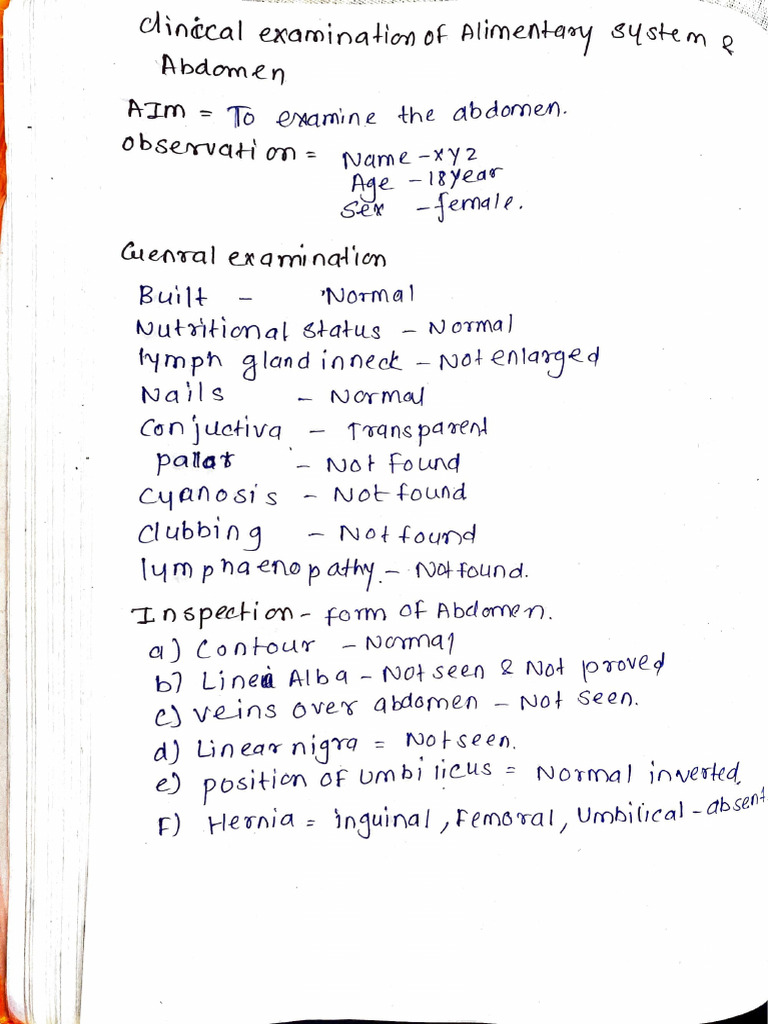 Clinical examination of Alimentary system &
Abdomen
AIm = To examine the abdomen.
Observation = Name - xyz
Age - 18 year
Sex - female.
Guenral examination
Built - Normal
Nutritional status - Normal
lymph gland in neck - Not enlarged
Nails - Normal
Conjuctiva - Transparent
pallar - Not found
Cyanosis - Not found
Clubbing - Not found
lymphaenopathy - Not found.
Inspection - form of Abdomen.
a) Contour - Normal
b) Linea Alba - Not seen & Not proved
c) veins over abdomen - Not seen.
d) Linear nigra = Not seen.
e) position of umbilicus = Normal inverted,
F) Hernia = inguinal, Femoral, Umbilical - absent